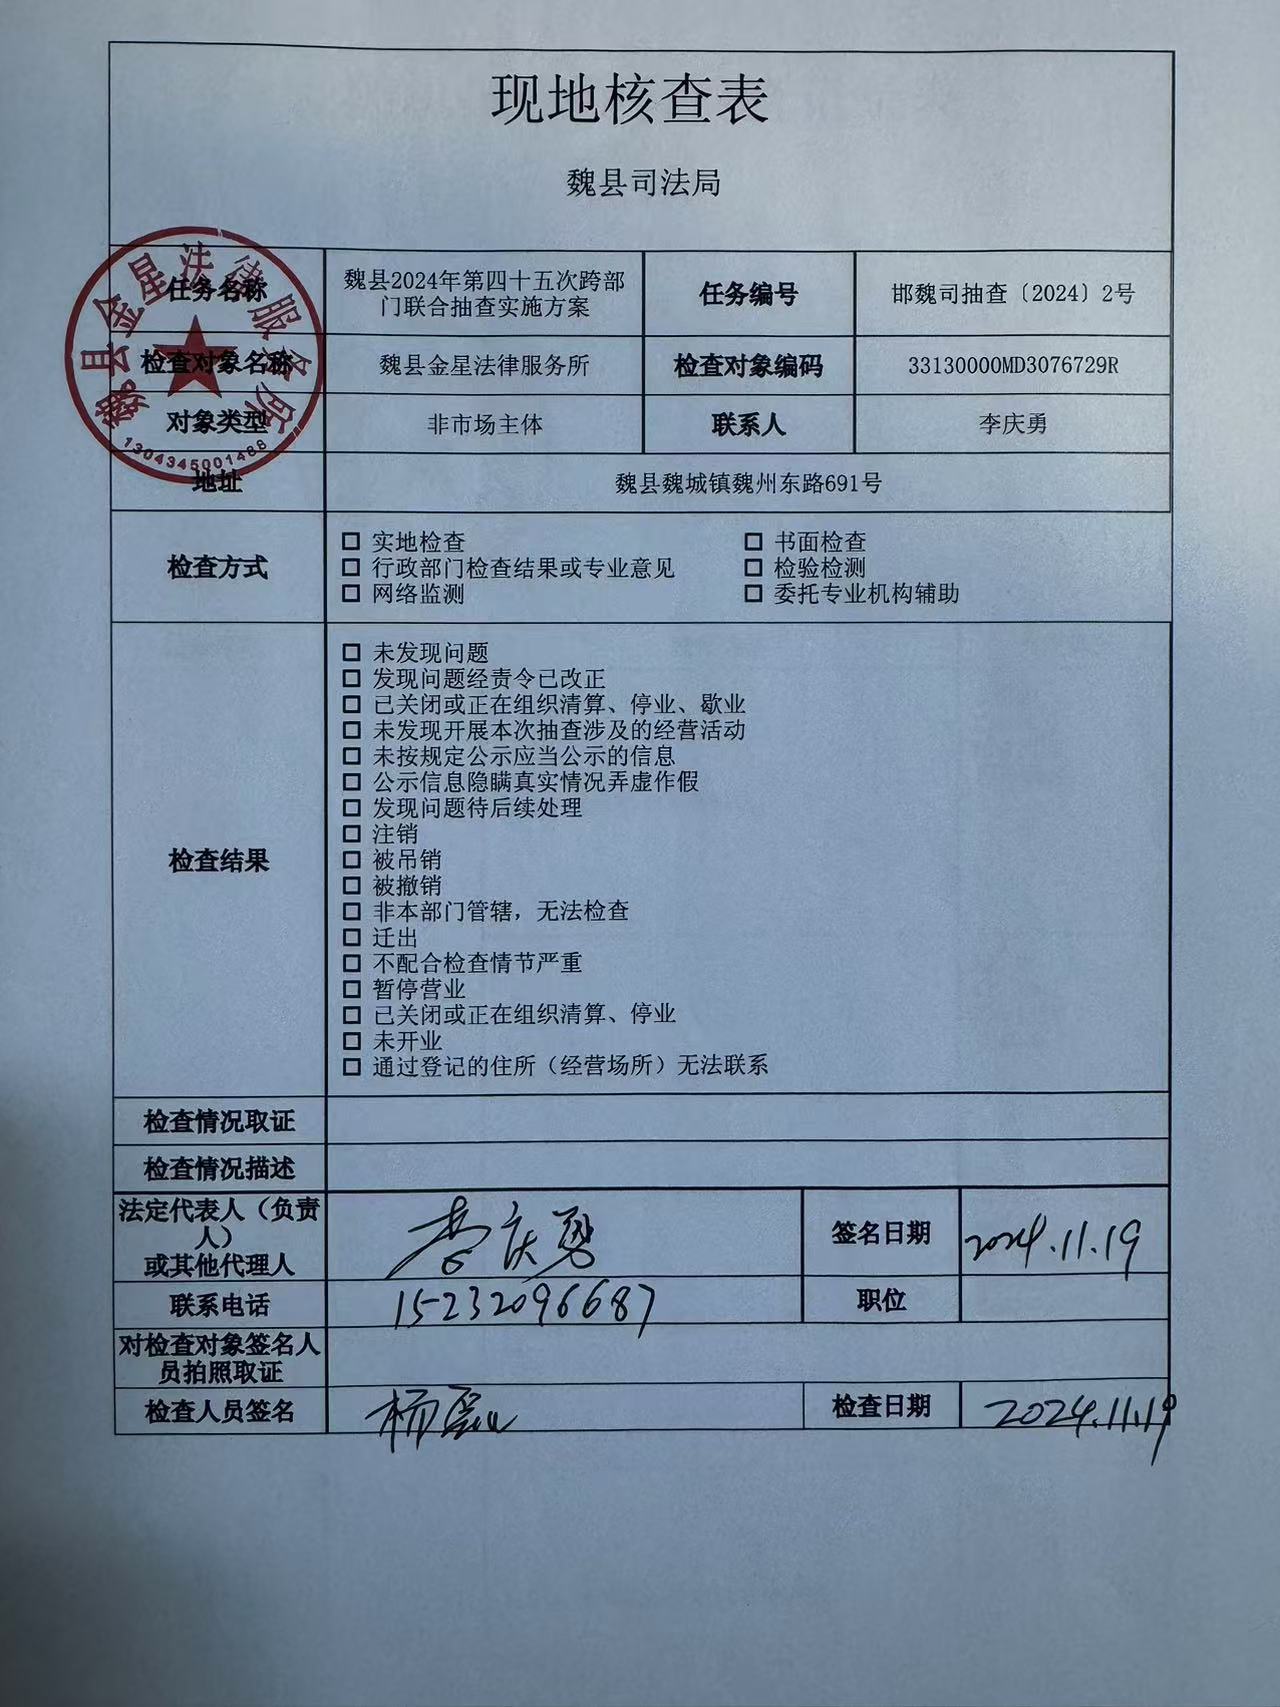 现地核查表
魏县司法局
魏县金星法律服务所
1304345001488
任务名称
魏县2024年第四十五次跨部
门联合抽查实施方案
任务编号
邯魏司抽查〔2024〕2号
检查对象名称
魏县金星法律服务所
检查对象编码
33130000MD3076729R
对象类型
非市场主体
联系人
李庆勇
地址
魏县魏城镇魏州东路691号
检查方式
□ 实地检查
□ 书面检查
□ 行政部门检查结果或专业意见
□ 检验检测
□ 网络监测
□ 委托专业机构辅助
检查结果
□ 未发现问题
□ 发现问题经责令已改正
□ 已关闭或正在组织清算、停业、歇业
□ 未发现开展本次抽查涉及的经营活动
□ 未按规定公示应当公示的信息
□ 公示信息隐瞒真实情况弄虚作假
□ 发现问题待后续处理
□ 注销
□ 被吊销
□ 被撤销
□ 非本部门管辖，无法检查
□ 迁出
□ 不配合检查情节严重
□ 暂停营业
□ 已关闭或正在组织清算、停业
□ 未开业
□ 通过登记的住所（经营场所）无法联系
检查情况取证
检查情况描述
法定代表人（负责
人）
或其他代理人
李庆勇
签名日期
2024.11.19
联系电话
15232096687
职位
对检查对象签名人
员拍照取证
检查人员签名
杨磊
检查日期
2024.11.19